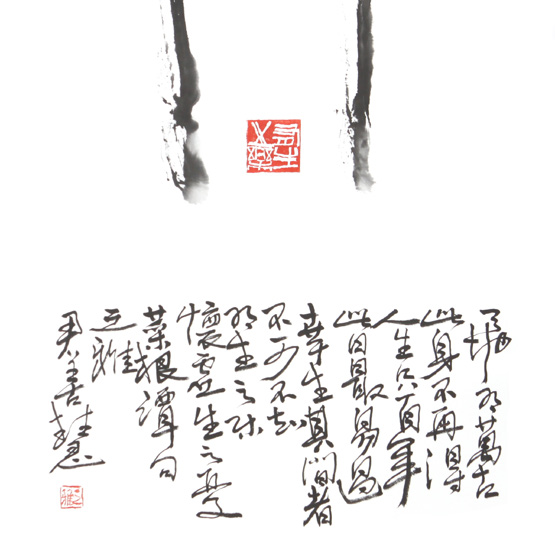 有生之樂
天地有萬古
此身不再得
人生只百年
此日最易過
幸生其間者
不可不知
有生之樂
懷虛生之憂
菜根譚句